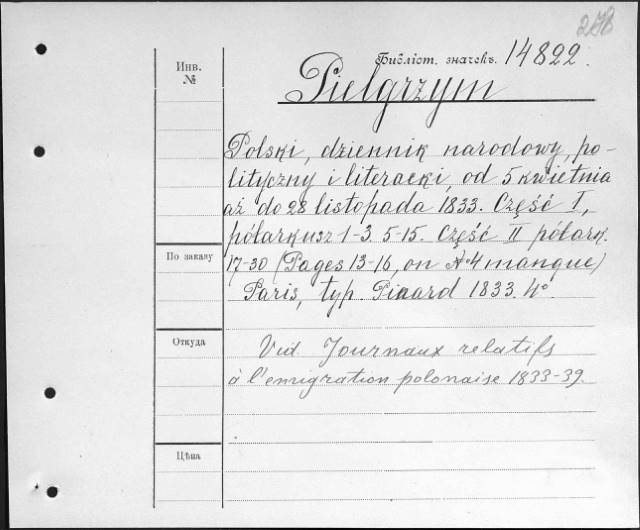 278
Инв.
№
Библіот. значекъ. 14822.
Pielgrzym
Polski, dziennik narodowy, po-
lityczny i literacki, od 5 kwietnia
aż do 28 listopada 1833. Część I,
półarkusz 1-3. 5-15. Część II półark.
17-30 (Pages 13-16, ou № 4 manque)
Paris, typ. Pinard 1833. 4°
По заказу
Откуда
Vid. Journaux relatifs
à l'emigration polonaise 1833-39.
Цѣна